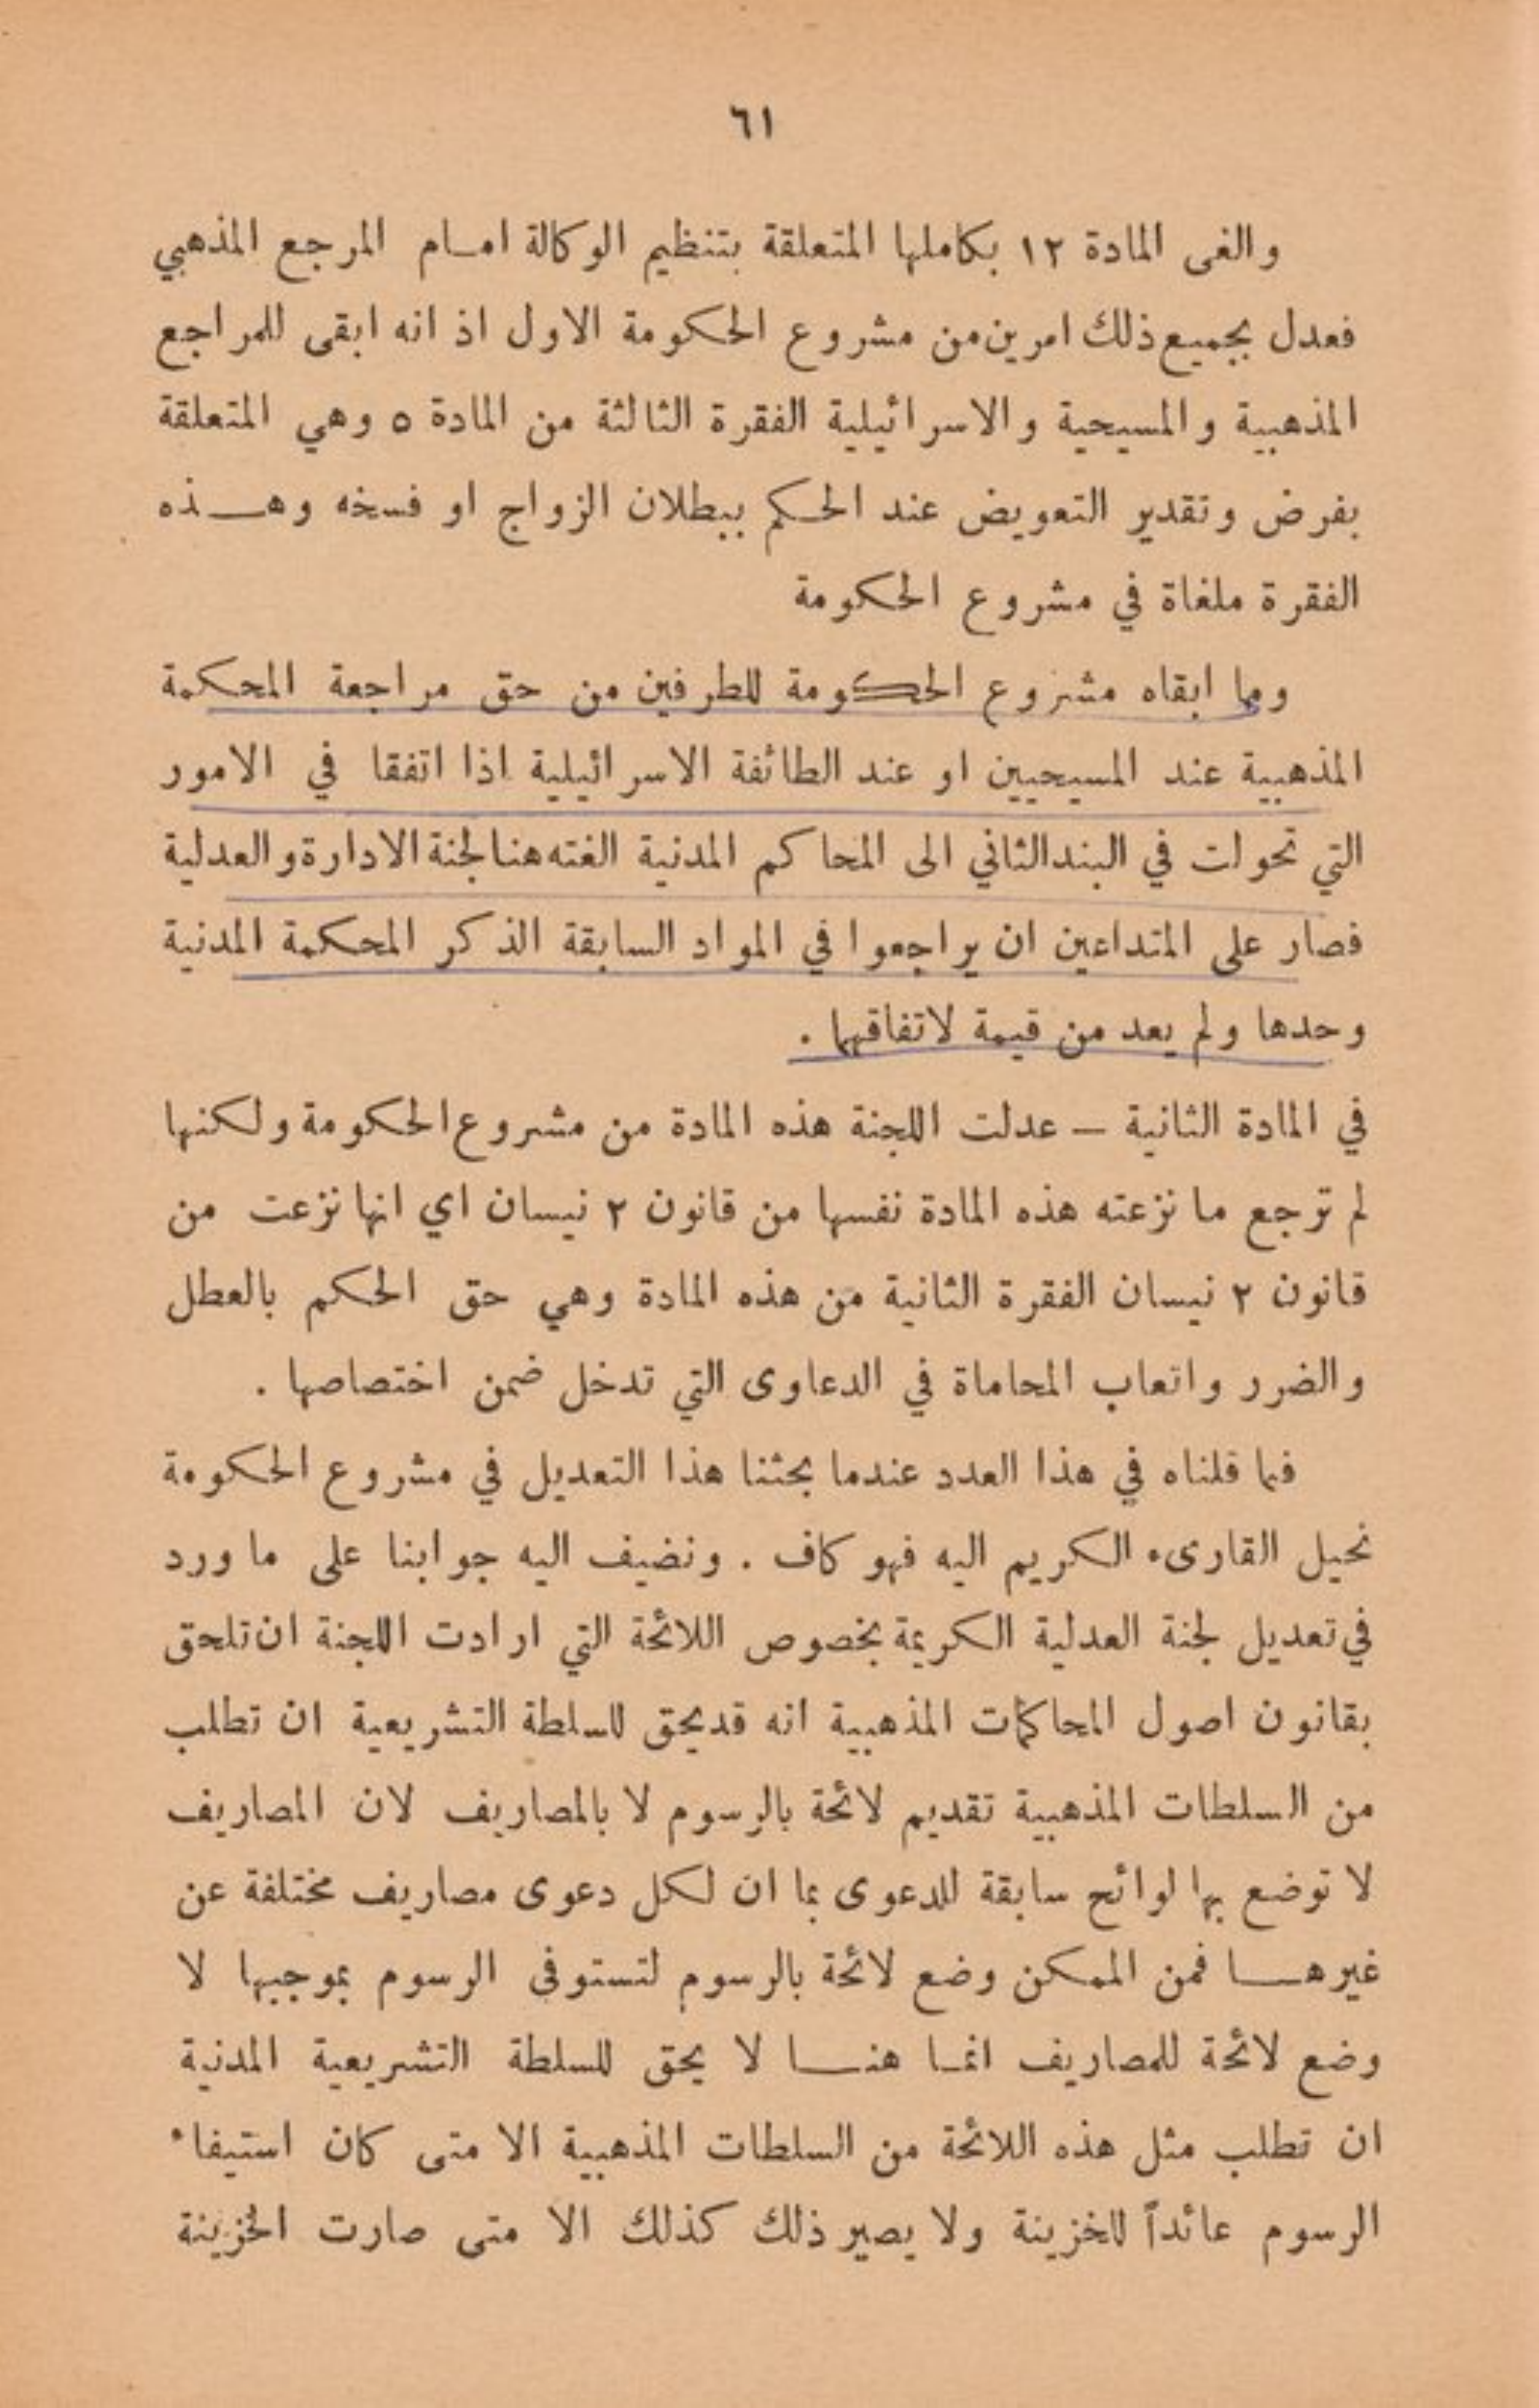 ٦١
والغى المادة ١٢ بكاملها المتعلقة بتنظيم الوكالة امام المرجع المذهبي
فعدل بجميع ذلك امرين من مشروع الحكومة الاول اذ انه ابقى للمراجع
المذهبية والمسيحية والاسرائيلية الفقرة الثالثة من المادة ٥ وهي المتعلقة
بفرض وتقدير التعويض عند الحكم ببطلان الزواج او فسخه وهذه
الفقرة ملغاة في مشروع الحكومة
ومما ابقاه مشروع الحكومة للطرفين من حق مراجعة المحكمة
المذهبية عند المسيحيين او عند الطائفة الاسرائيلية اذا اتفقا في الامور
التي تحولت في البند الثاني الى المحاكم المدنية الغته هنا لجنة الادارة والعدلية
فصار على المتداعين ان يراجعوا في المواد السابقة الذكر المحكمة المدنية
وحدها ولم يعد من قيمة لاتفاقهما .
في المادة الثانية – عدلت اللجنة هذه المادة من مشروع الحكومة ولكنها
لم ترجع ما نزعته هذه المادة نفسها من قانون ٢ نيسان اي انها نزعت من
قانون ٢ نيسان الفقرة الثانية من هذه المادة وهي حق الحكم بالعطل
والضرر واتعاب المحاماة في الدعاوى التي تدخل ضمن اختصاصها .
فما قلناه في هذا العدد عندما بحثنا هذا التعديل في مشروع الحكومة
نحيل القارىء الكريم اليه فهو كاف . ونضيف اليه جوابنا على ما ورد
في تعديل لجنة العدلية الكريمة بخصوص اللائحة التي ارادت اللجنة ان تلحق
بقانون اصول المحاكمات المذهبية انه قد يحق للسلطة التشريعية ان تطلب
من السلطات المذهبية تقديم لائحة بالرسوم لا بالمصاريف لان المصاريف
لا توضع بها لوائح سابقة للدعوى بما ان لكل دعوى مصاريف مختلفة عن
غيرها فمن الممكن وضع لائحة بالرسوم لتستوفى الرسوم بموجبها لا
وضع لائحة للمصاريف انما هنا لا يحق للسلطة التشريعية المدنية
ان تطلب مثل هذه اللائحة من السلطات المذهبية الا متى كان استيفاء
الرسوم عائداً للخزينة ولا يصير ذلك كذلك الا متى صارت الخزينة